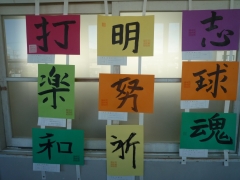 打 明 志
楽 努 球
和 祈 魂